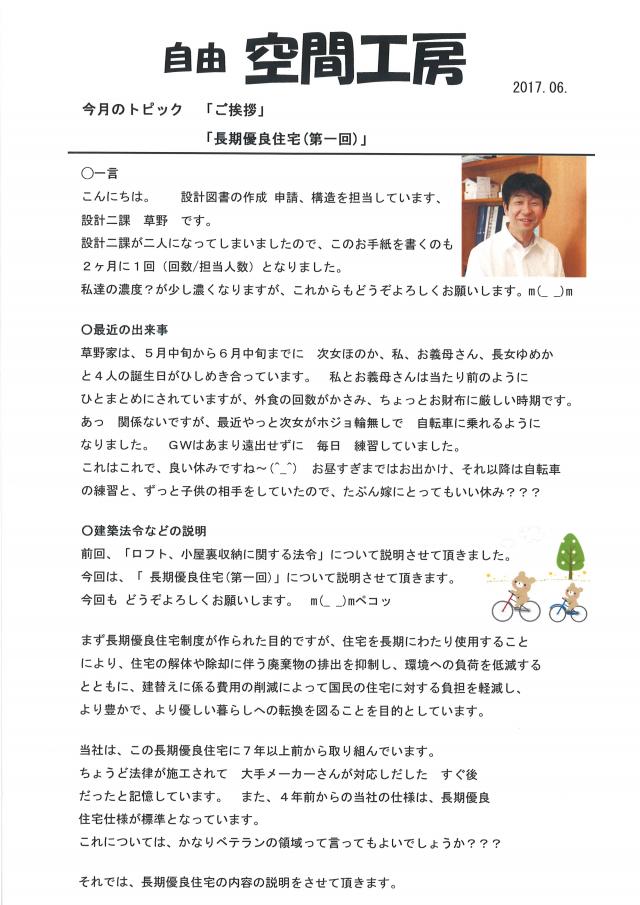 自由 空間工房
2017.06.
今月のトピック 「ご挨拶」
「長期優良住宅(第一回)」
〇一言
こんにちは。 設計図書の作成 申請、構造を担当しています、
設計二課 草野 です。
設計二課が二人になってしまいましたので、このお手紙を書くのも
２ヶ月に１回（回数/担当人数）となりました。
私達の濃度？が少し濃くなりますが、これからもどうぞよろしくお願いします。m(_ _)m
〇最近の出来事
草野家は、５月中旬から６月中旬までに 次女ほのか、私、お義母さん、長女ゆめか
と４人の誕生日がひしめき合っています。 私とお義母さんは当たり前のように
ひとまとめにされていますが、外食の回数がかさみ、ちょっとお財布に厳しい時期です。
あっ 関係ないですが、最近やっと次女がホジョ輪無しで 自転車に乗れるように
なりました。 ＧＷはあまり遠出せずに 毎日 練習していました。
これはこれで、良い休みですね～(^_^) お昼すぎまではお出かけ、それ以降は自転車
の練習と、ずっと子供の相手をしていたので、たぶん嫁にとってもいい休み？？？
〇建築法令などの説明
前回、「ロフト、小屋裏収納に関する法令」について説明させて頂きました。
今回は、「 長期優良住宅(第一回)」について説明させて頂きます。
今回も どうぞよろしくお願いします。 m(_ _)mペコッ
まず長期優良住宅制度が作られた目的ですが、住宅を長期にわたり使用すること
により、住宅の解体や除却に伴う廃棄物の排出を抑制し、環境への負荷を低減する
とともに、建替えに係る費用の削減によって国民の住宅に対する負担を軽減し、
より豊かで、より優しい暮らしへの転換を図ることを目的としています。
当社は、この長期優良住宅に７年以上前から取り組んでいます。
ちょうど法律が施工されて 大手メーカーさんが対応しだした すぐ後
だったと記憶しています。 また、４年前からの当社の仕様は、長期優良
住宅仕様が標準となっています。
これについては、かなりベテランの領域って言ってもよいでしょうか？？？
それでは、長期優良住宅の内容の説明をさせて頂きます。